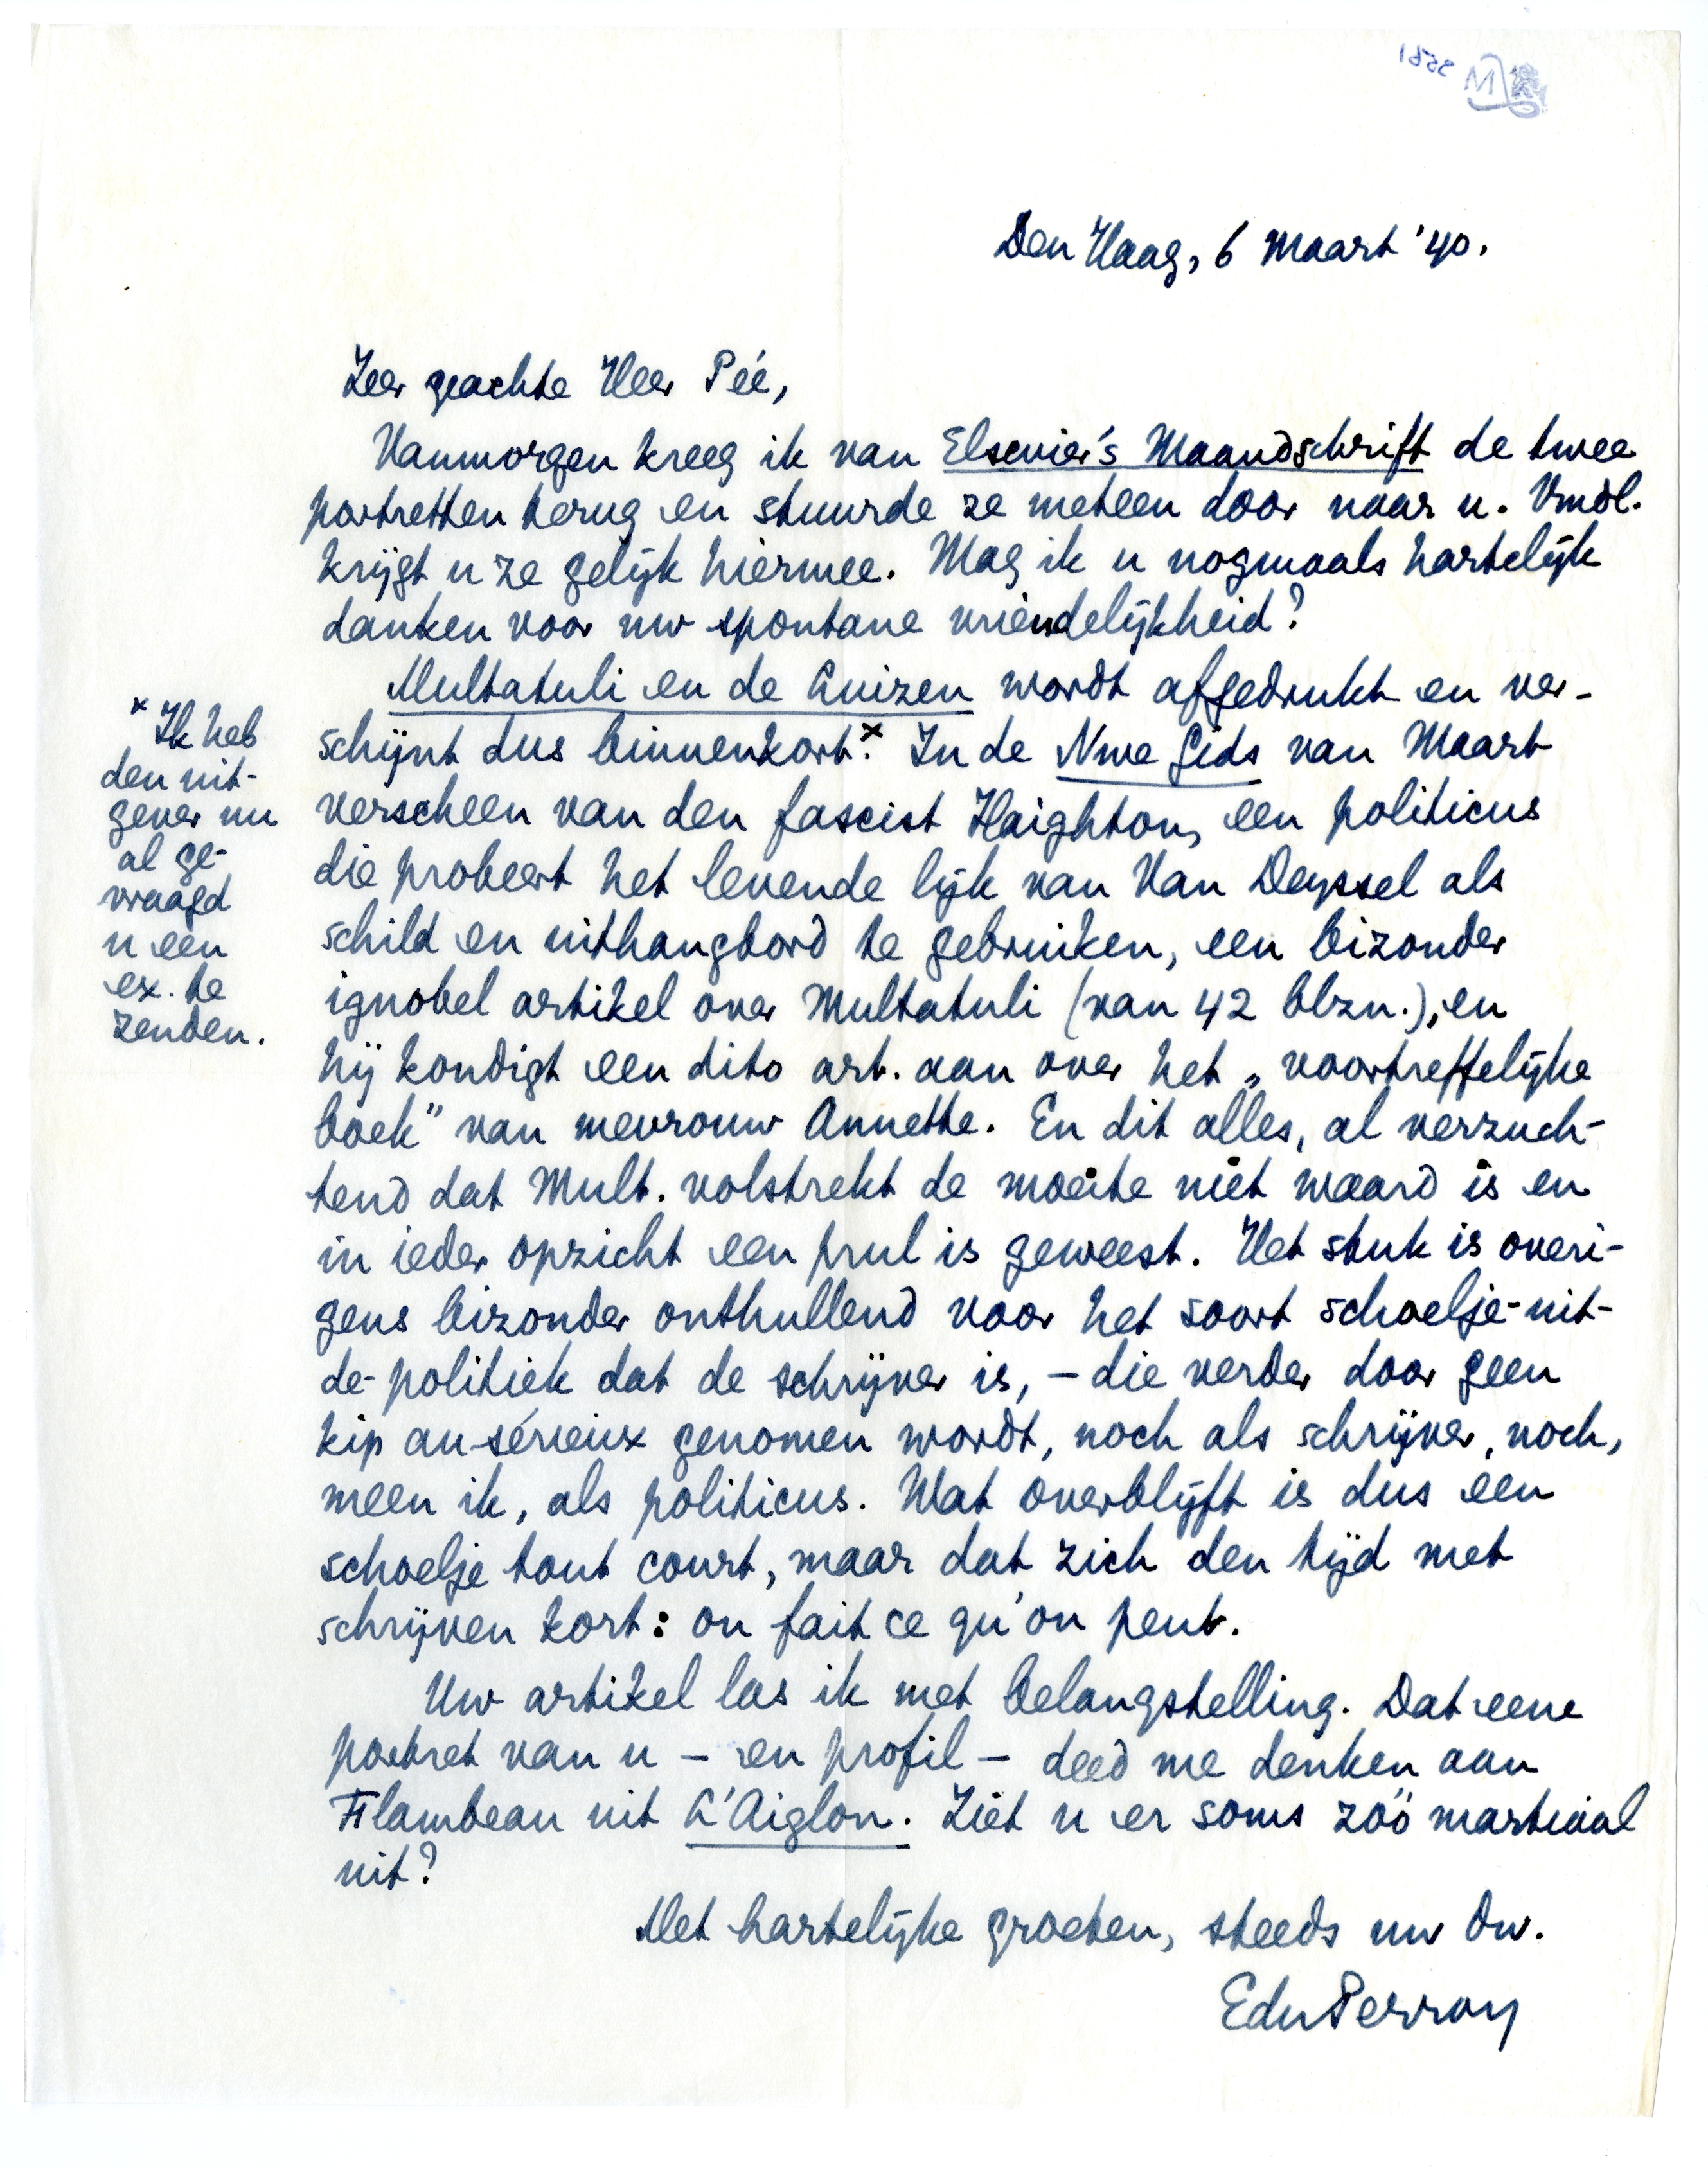 Den Haag, 6 Maart '40.
Zeer geachte Heer Pée,
Vanmorgen kreeg ik van Elsevier's Maandschrift de twee
portretten terug en stuurde ze meteen door naar u. Vmdl.
krijgt u ze gelijk hiermee. Mag ik u nogmaals hartelijk
danken voor uw spontane vriendelijkheid?
Multatuli en de Luizen wordt afgedrukt en ver-
schijnt dus binnenkort.x In de Nwe Gids van Maart
verscheen van den fascist Haighton, een politicus
die probeert het levende lijk van Van Deyssel als
schild en uithangbord te gebruiken, een bizonder
ignobel artikel over Multatuli (van 42 blzn.), en
hij kondigt een dito art. aan over het „voortreffelijke
boek” van mevrouw Annette. En dit alles, al verzuch-
tend dat Mult. volstrekt de moeite niet waard is en
in ieder opzicht een prul is geweest. Het stuk is overi-
gens bizonder onthullend voor het soort schoelje-uit-
de-politiek dat de schrijver is, – die verder door geen
kip au-sérieux genomen wordt, noch als schrijver, noch,
meen ik, als politicus. Wat overblijft is dus een
schoelje tout court, maar dat zich den tijd met
schrijven kort: on fait ce qu'on peut.
Uw artikel las ik met belangstelling. Dat eene
portret van u – en profil – deed me denken aan
Flambeau uit L'Aiglon. Ziet u er soms zóó martiaal
uit?
Met hartelijke groeten, steeds uw dw.
EduPerron
x Ik heb
den uit-
gever nu
al ge-
vraagd
u een
ex. te
zenden.